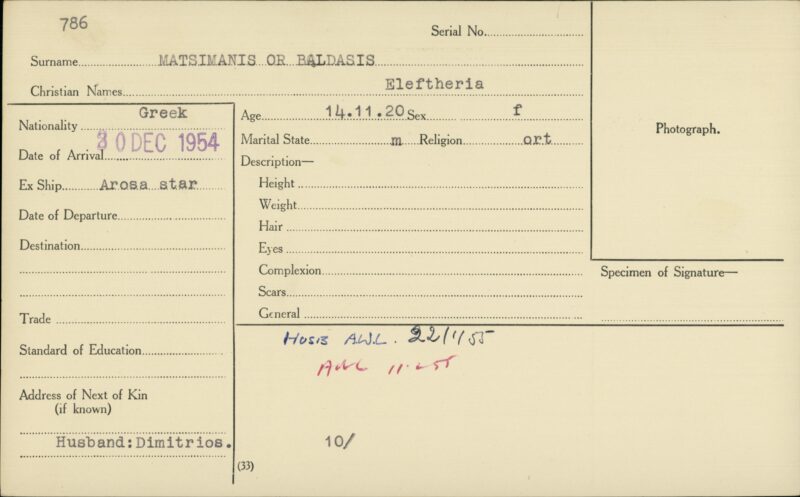 786
Serial No.
Surname MATSIMANIS OR BALDASIS
Christian Names Eleftheria
Nationality Greek
Date of Arrival 30 DEC 1954
Ex Ship Arosa star
Date of Departure
Destination
Trade
Standard of Education
Address of Next of Kin
(if known)
Husband:Dimitrios.
Age 14.11.20 Sex f
Marital State m Religion ort
Description—
Height
Weight
Hair
Eyes
Complexion
Scars
General
Photograph.
Specimen of Signature—
AWL. 22/1/55
10/
(33)